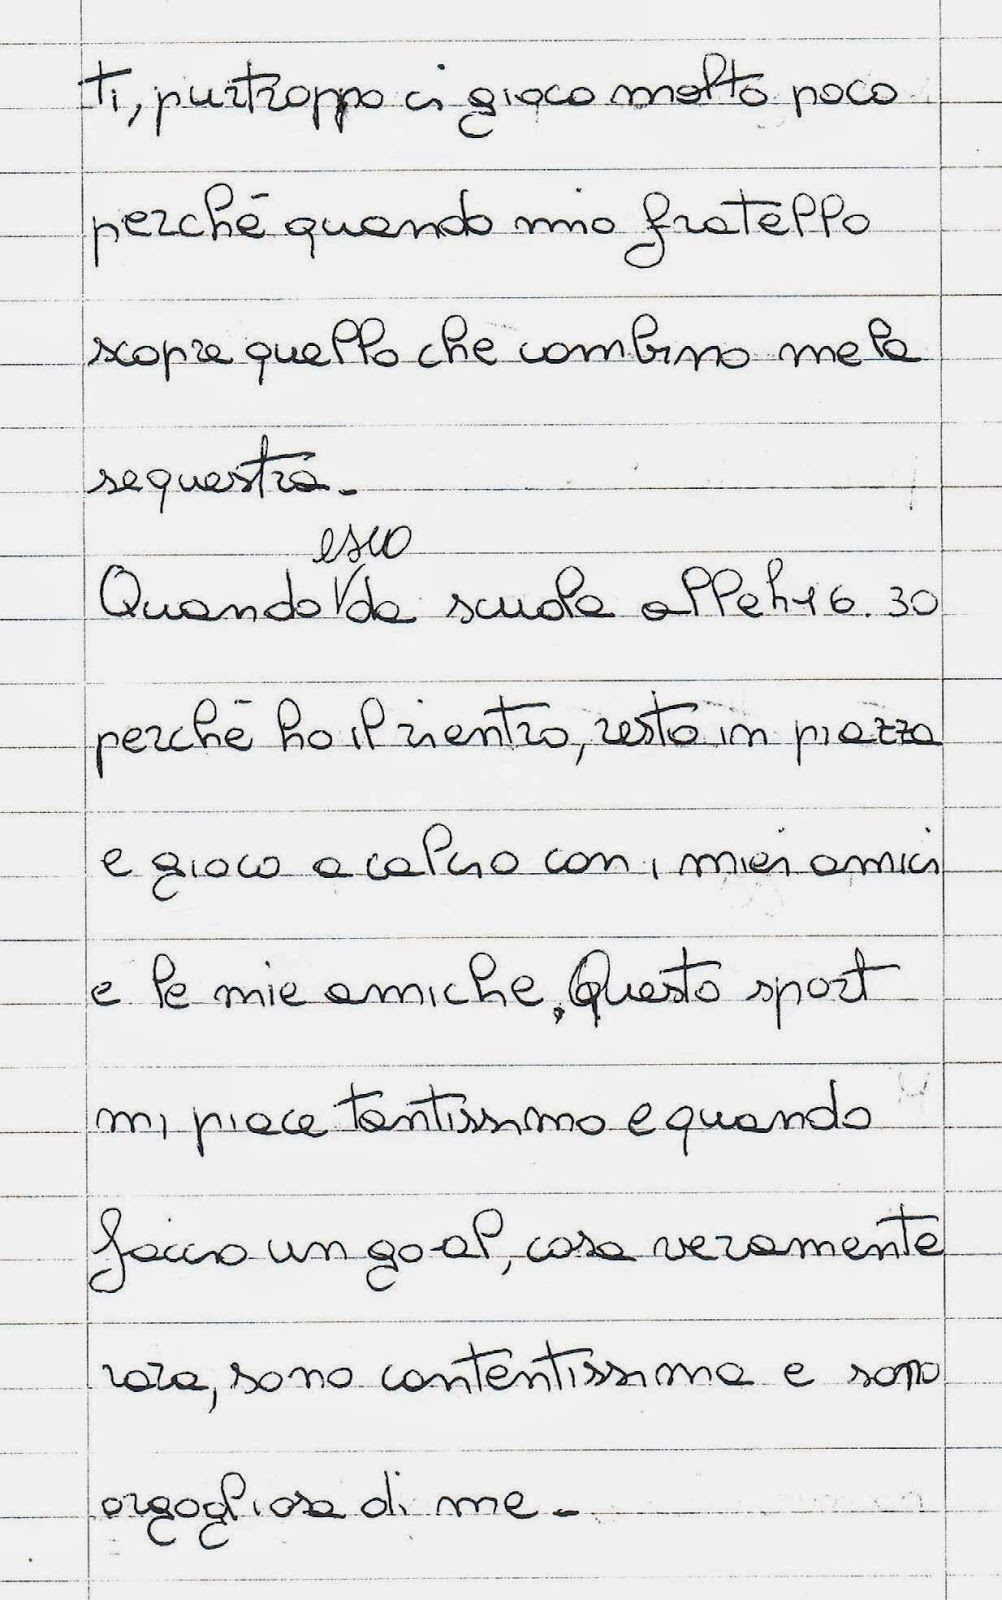 ti, purtroppo ci gioco molto poco
perché quando mio fratello
scopre quello che combino me la
sequestra.
esco
Quando da scuola alle h 16.30
perché ho il rientro, resto in piazza
e gioco a calcio con i miei amici
e le mie amiche. Questo sport
mi piace tantissimo e quando
faccio un goal, cosa veramente
rara, sono contentissima e sono
orgogliosa di me.